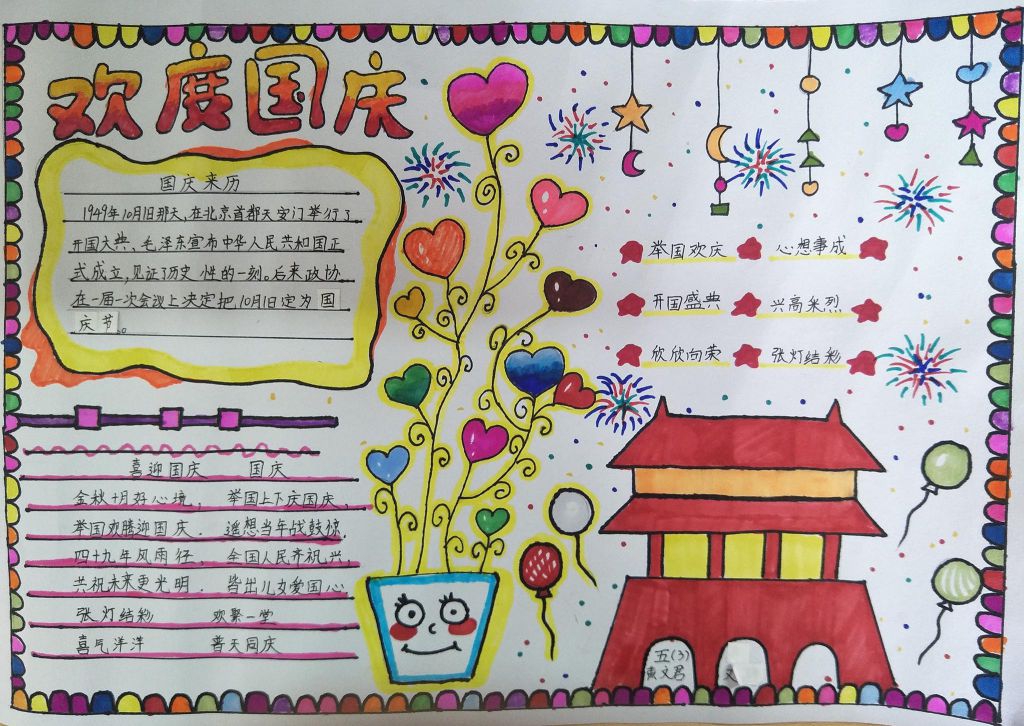 欢度国庆
国庆来历
1949年10月1日那天,在北京首都天安门举行了
开国大典、毛泽东宣布中华人民共和国正
式成立,见证了历史性的一刻。后来政协
在一届一次会议上决定把10月1日定为国
庆节。
举国欢庆 心想事成
开国盛典 兴高采烈
欣欣向荣 张灯结彩
喜迎国庆 国庆
金秋十月好心境, 举国上下庆国庆,
举国欢腾迎国庆. 遥想当年战鼓惊.
四十九年风雨径、 全国人民齐祝兴,
共祝未来更光明. 皆出儿女爱国心.
张灯结彩 欢聚一堂
喜气洋洋 普天同庆
五(3)
文君